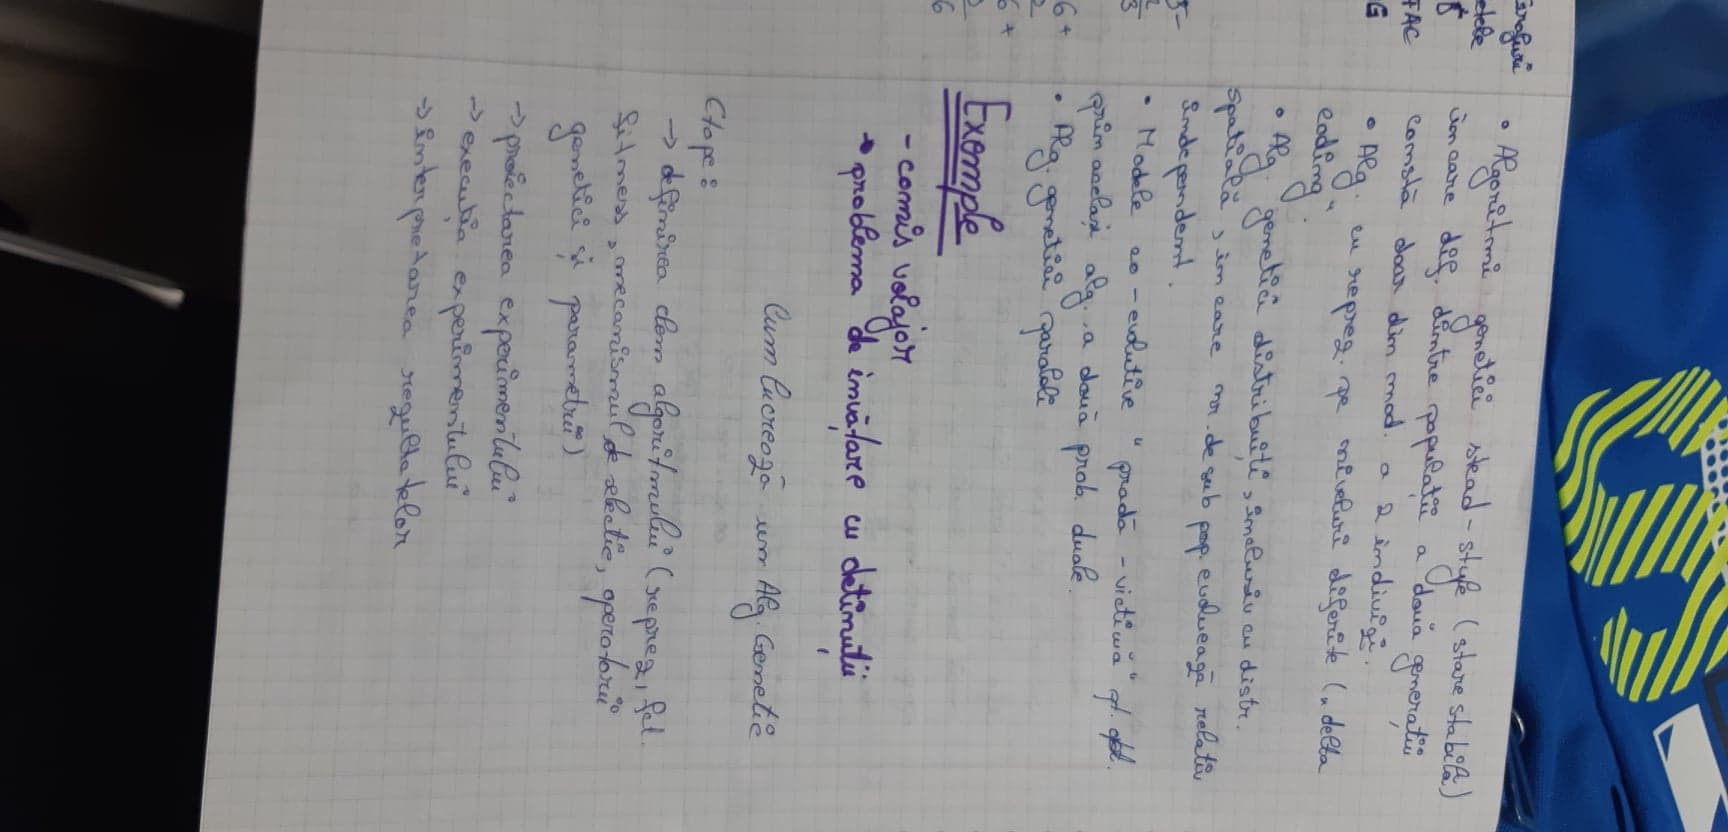 Grafuri
etele
FAC
G
• Algoritmi genetici stead-style (stare stabilă)
în care dif. dintre populații a două generații
constă doar din mod. a 2 indivizi.
• Alg. cu reprez. pe niveluri diferite („delta
coding”.
• Alg. genetici distribuiți, inclusiv cu distr.
spatială, in care nr. de sub pop. evoluează relativ
independent.
• Modele co-evolutive "pradă - victimă" pt. opt.
prin același alg. a două prob. duale.
• Alg. genetici paraleli
Exemple
- comis volajor
• problema de învățare cu deținuții
Cum lucrează un Alg. Genetic
Etape:
→ definirea elem algoritmului (reprez, fct.
fitness, mecanismul de selectie, operatorii
genetici și parametrii)
→ proiectarea experimentului
→ execuția experimentului
→ interpretarea rezultatelor
5-
2
3
6+
2
6+
6